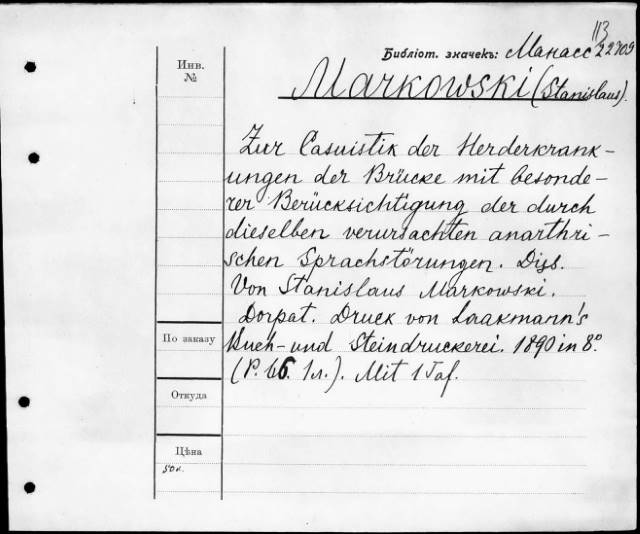 113
Библіот. значекъ: Манасс 22709
Инв.
№
Markowski (Stanislaus).
Zur Casuistik der Herderkrank-
ungen der Brücke mit besonde-
rer Berücksichtigung der durch
dieselben verursachten anarthri-
schen Sprachstörungen. Diss.
Von Stanislaus Markowski.
Dorpat. Druck von Laakmann's
Buch- und Steindruckerei. 1890 in 8.°
(P. 66. 1 л.). Mit 1 Taf.
По заказу
Откуда
Цѣна
50 к.